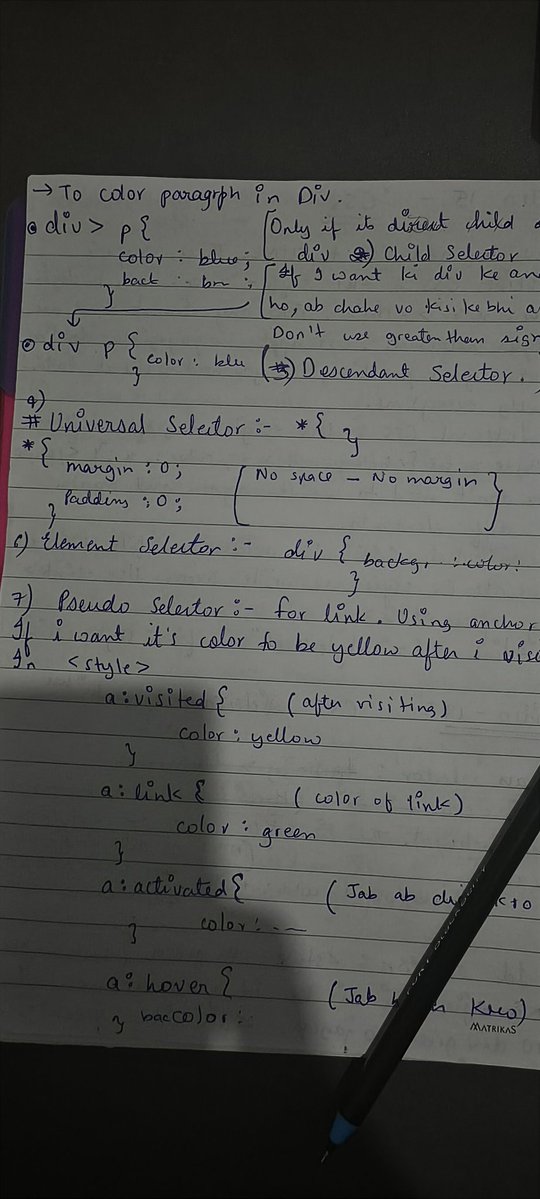 → To color paragrph in Div.
div > p {
[Only if it direct child
color : blue;
div Child Selector
back : bn :;
[If I want ki div ke an
}
ho, ab chahe vo kisi ke bhi a
Don't use greater them sign
div p { color : blu
}
Descendant Selector.
# Universal Selector :- *{ }
*{
margin : 0;
[No space - No margin]
Padding : 0;
}
6) Element Selector :- div { backg. : color:
}
7) Pseudo Selector :- for link. Using anchor
If i want it's color to be yellow after i
In <style>
a:visited { (after visiting)
color : yellow
}
a:link { (color of link)
color : green
}
a:activated { (Jab ab
color : ...
}
a:hover { (Jab Kro)
} bac color :
MATRIKAS